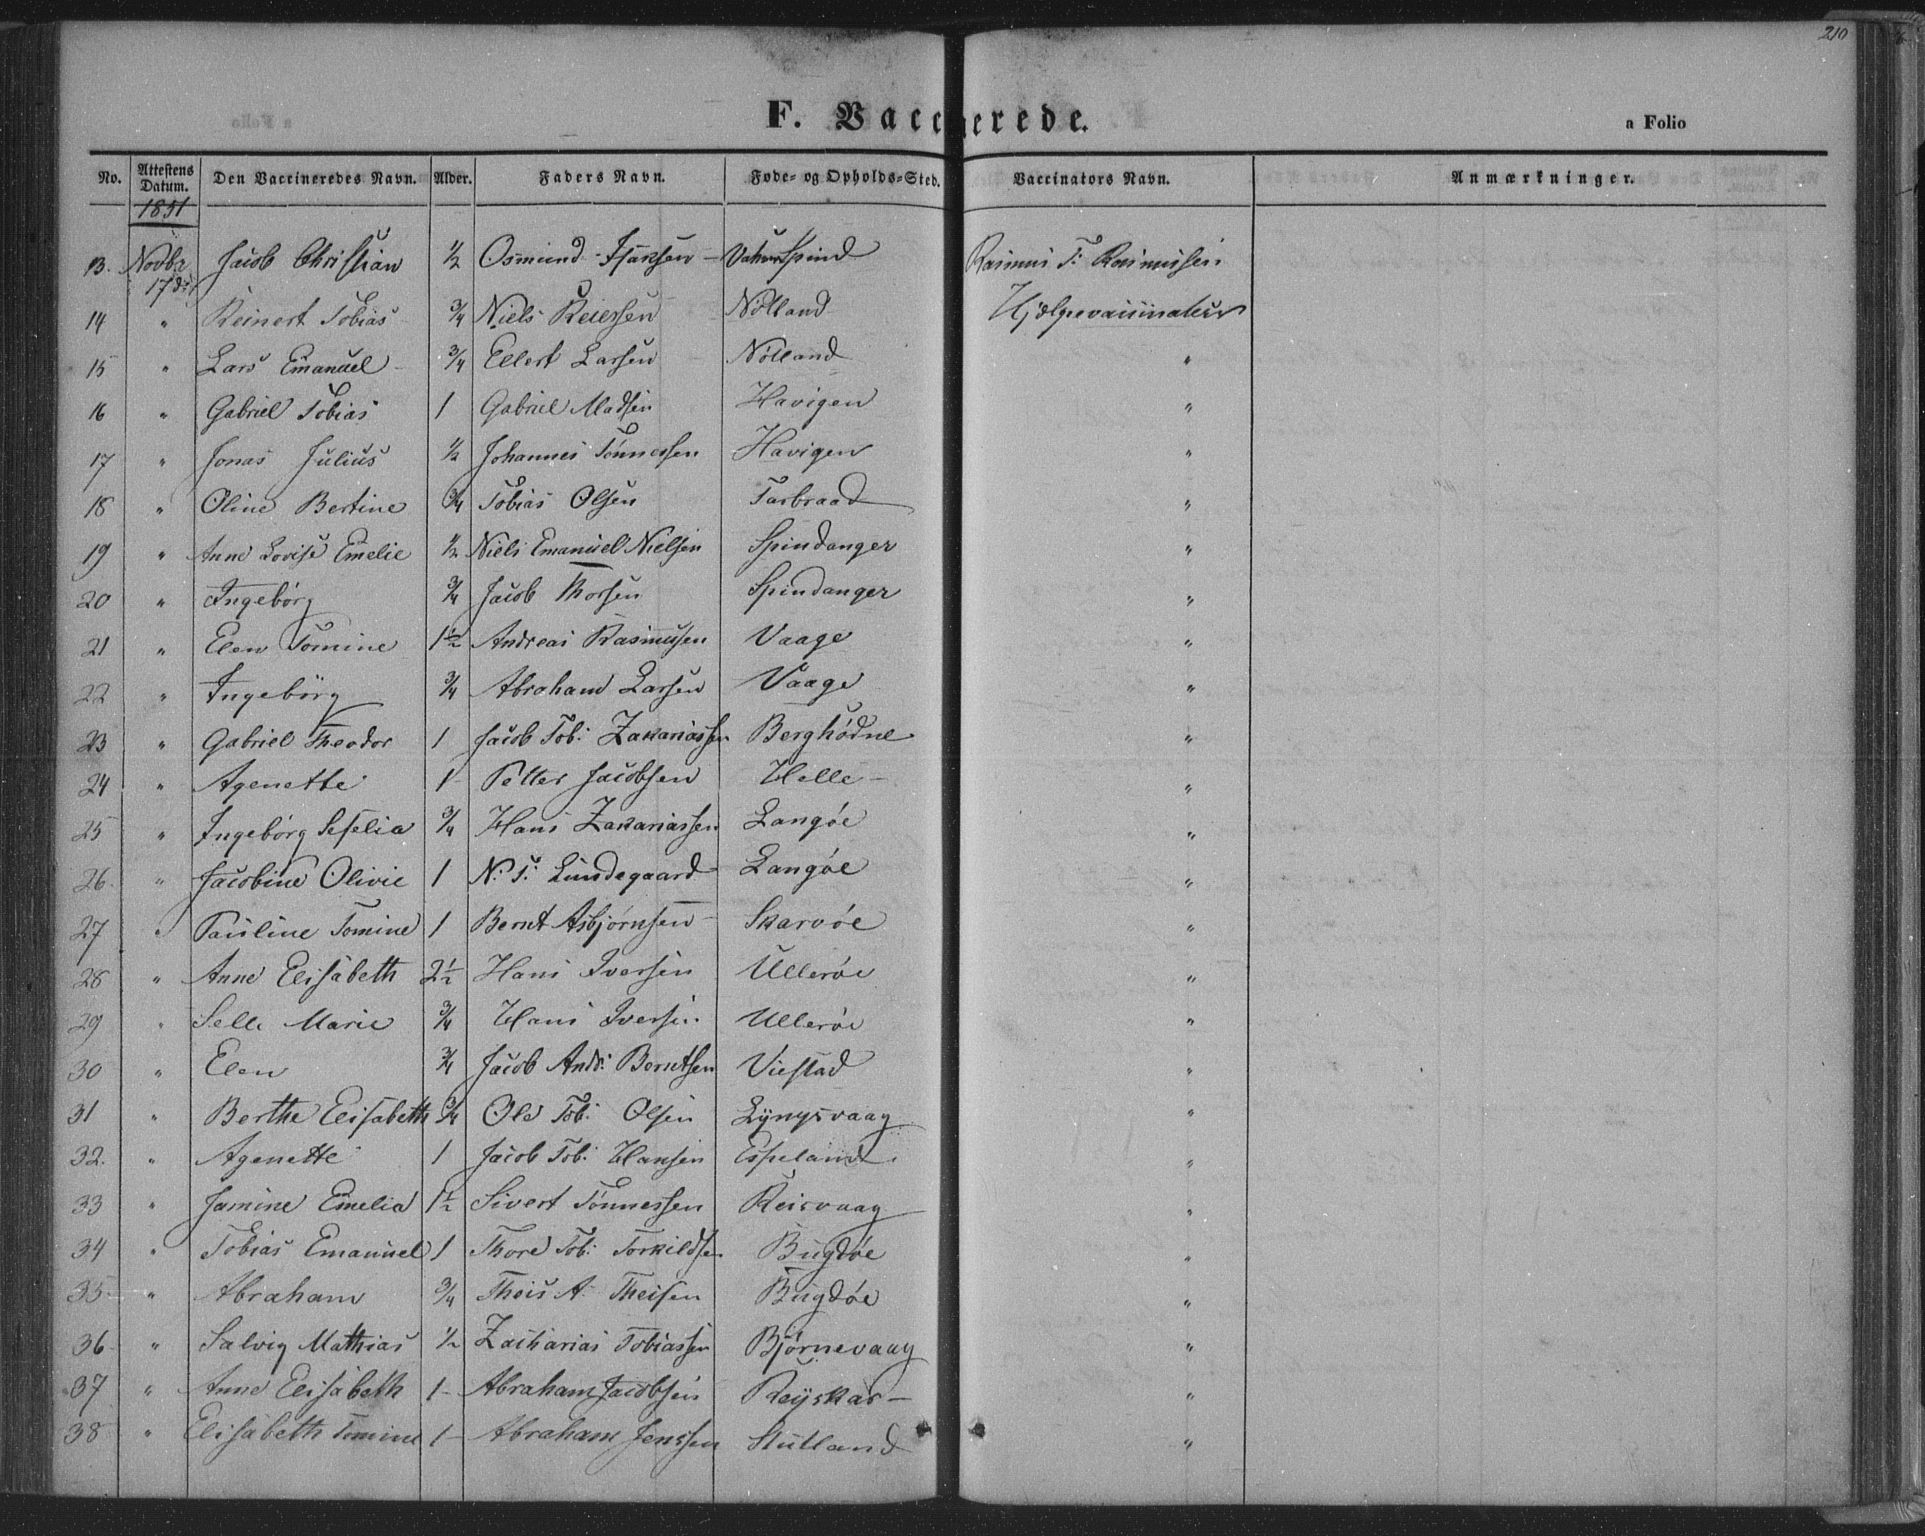 210
F. Vaccinerede.
a Folio
No. Attestens Datum. Den Vaccineredes Navn. Alder. Faders Navn. Føde- og Opholds-Sted. Vaccinators Navn. Anmærkninger.
1851
13. Novbr 17de Jacob Christian ½ Osmund Isaksen - Spind Rasmus T. Rasmussen
14 " Reinert Tobias ¾ Niels Reiersen Nölland Hjælpevaccinateur
15 " Lars Emanuel ¾ Ellert Larsen Nölland "
16 " Gabriel Tobias 1 Gabriel Madsen Havigen "
17 " Jonas Julius ½ Johannes Tönnessen Havigen "
18 " Oline Bertine ¾ Tobias Olsen Farbraad "
19 " Anne Lovise Emelie ½ Niels Emanuel Nielsen Spindanger "
20 " Ingebórg ¾ Jacob Thorsen Spindanger "
21 " Elen Tomine 1½ Andreas Rasmusen Vaage "
22 " Ingebörg ¾ Abraham Larsen Vaage "
23 " Gabriel Theodor 1 Jacob Tob: Zakariassen Berghódne "
24 " Agenette 1 Petter Jacobsen Helle "
25 " Ingebórg Seselia ¾ Hans Zakariassen Langóe "
26. " Jacobine Olivie 1 N. T. Lundegaard Langóe "
27 " Pauline Tomine 1 Bernt Asbjørnsen Skarvóe "
28 " Anne Elisabeth 2½ Hans Iversen Ulleróe "
29 " Selle Marie ¾ Hans Iversen Ulleróe "
30 " Elen ¾ Jacob Andr: Berntsen Viestad "
31 " Berthe Elisabeth ¾ Ole Tob: Olsen Lyngsvaag "
32. " Agenette 1 Jacob Tob: Hansen Espeland "
33 " Jamine Emelia 1½ Sivert Tónnessen Reisvaag "
34 " Tobias Emanuel 1 Thore Tob: Torkildsen Bugdóe "
35 " Abraham ¾ Theis A. Theisen Bugdóe "
36 " Salvig Mathias ½ Zacharias Tobiassen Bjørnevaag "
37 " Anne Elisabeth 1 Abraham Jacobsen Reyskar "
38 " Elisabeth Tomine 1 Abraham Jenssen Stutland "